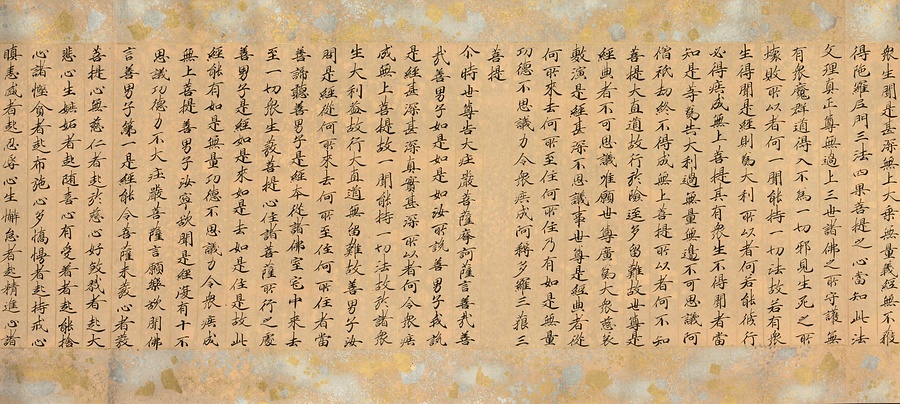 眾生聞是甚深無上大乘無量義經無不獲
得陀羅尼門三法四果菩提之心當知此法
文理真正尊無過上三世諸佛之所守護無
有眾魔群道得入不為一切邪見生死之所
壞敗所以者何一聞能持一切法故若有眾
生得聞是經則為大利所以者何若能修行
必得疾成無上菩提其有眾生不得聞者當
知是等為失大利過無量無邊不可思議阿
僧祇劫終不得成無上菩提所以者何不知
菩提大道直故行於險逕多留難故世尊是
經典者不可思議唯願世尊廣為大眾慈哀
敷演是經甚深不思議事世尊是經典者從
何所來去何所至住何所住乃有如是無量
功德不思議力令眾疾成阿耨多羅三藐三
菩提
尒時世尊告大莊嚴菩薩摩訶薩言善哉善
哉善男子如是如是如汝所說善男子我說
是經甚深甚深真實甚深所以者何令眾疾
成無上菩提故一聞能持一切法故於諸眾
生大利益故行大直道無留難故善男子汝
問是經從何所來去何所至住何所住者當
善諦聽善男子是經本從諸佛室宅中來去
至一切眾生發菩提心住諸菩薩所行之處
善男子是經如是來如是去如是住是故此
經能有如是無量功德不思議力令眾疾成
無上菩提善男子汝寧欲聞是經復有十不
思議功德力不大莊嚴菩薩言願樂欲聞佛
言善男子第一是經能令菩薩未發心者發
菩提心無慈仁者起於慈心好殺戮者起大
悲心生嫉妬者起隨喜心有愛著者起能捨
心諸慳貪者起布施心多憍慢者起持戒心
瞋恚盛者起忍辱心生懈怠者起精進心諸